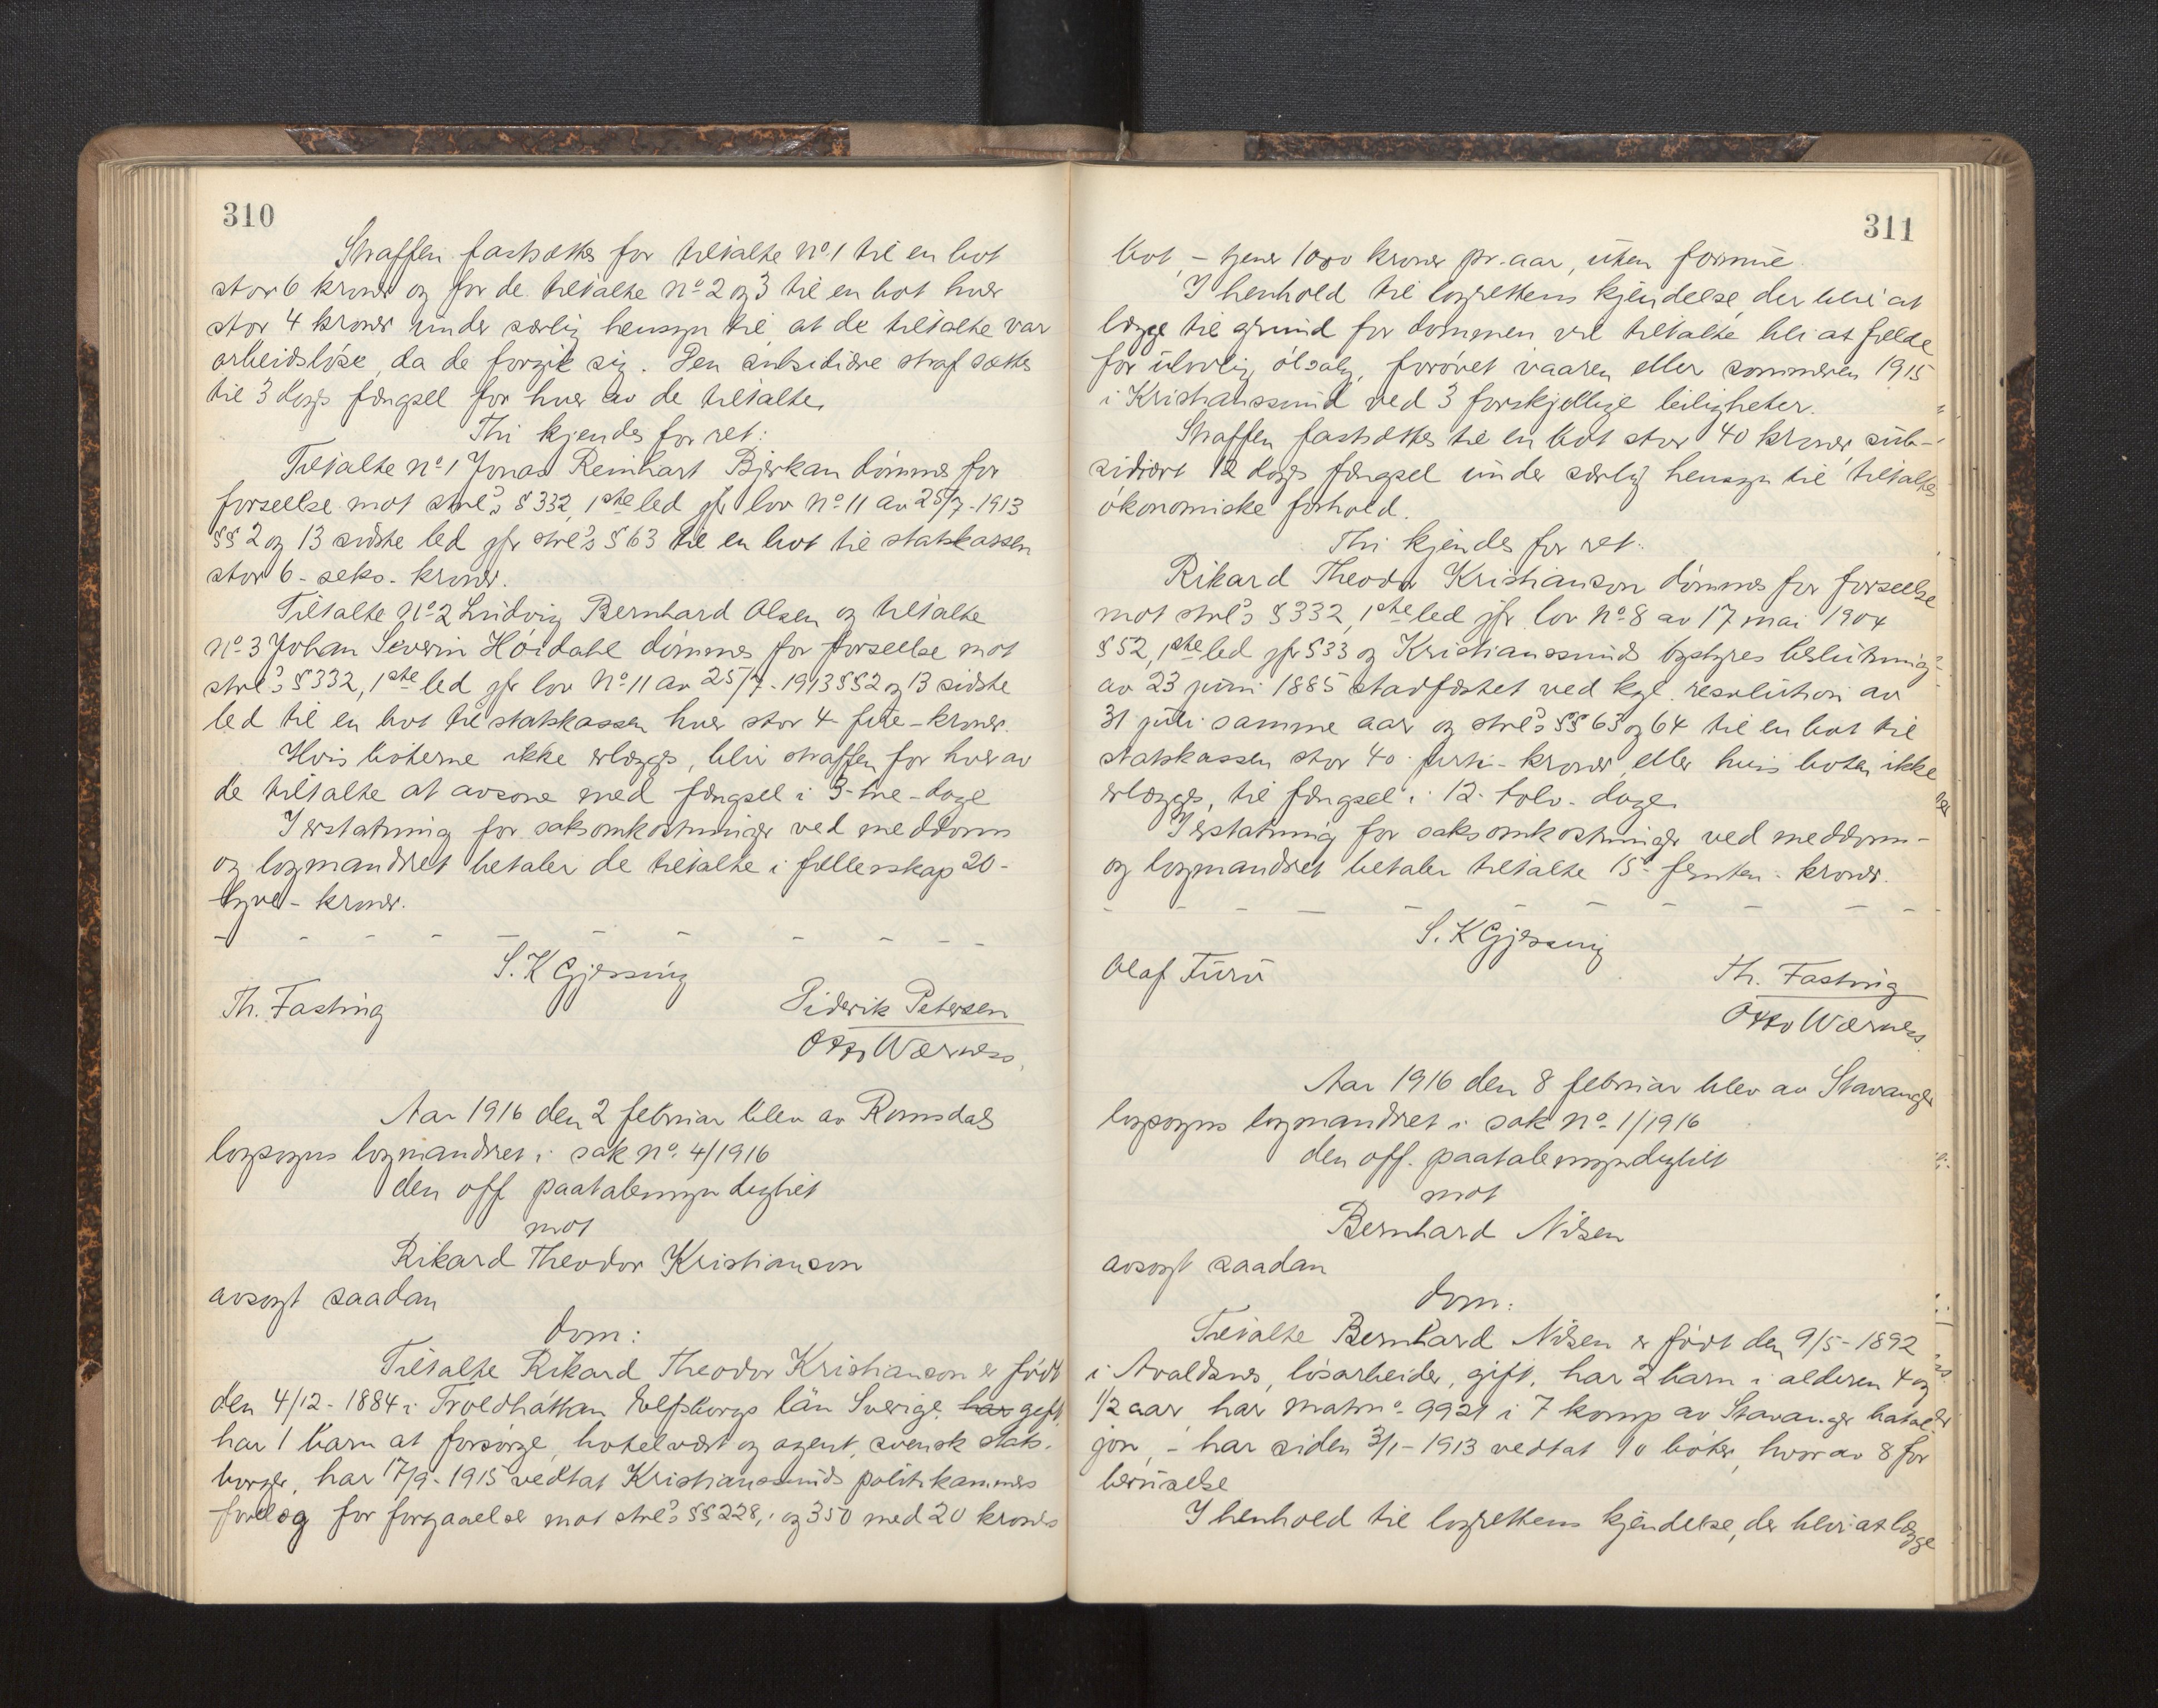 310
Straffen fastsættes for tiltalte no. 1 til en bot
stor 6 kroner og for de tiltalte no. 2 og 3 til en bot hver
stor 4 kroner under særlig hensyn til at de tiltalte var
arbeidsløse, da de forgik sig. Den subsidiære straf sættes
til 3 dags fængsel for hver av de tiltalte.
Thi kjendes for ret:
Tiltalte no. 1 Jonas Reinhart Bjerkan dømmes for
forseelse mot strl's § 332, 1ste led jfr lov no. 11 av 25/7-1913
§§ 2 og 13 sidste led jfr strl's § 63 til en bot til statskassen
stor 6 - seks - kroner.
Tiltalte no. 2 Ludvig Bernhard Olsen og tiltalte
no. 3 Johan Severin Höidahl dømmes for forseelse mot
strl's § 332, 1ste led jfr lov no. 11 av 25/7-1913 §§ 2 og 13 sidste
led til en bot til statskassen hver stor 4 - fire - kroner.
Hvis bøterne ikke erlægges, blir straffen for hver av
de tiltalte at avsone med fængsel i 3 - tre - dage
I erstatning for saksomkostninger ved meddoms
og lagmandsret betaler de tiltalte i fællesskap 20 -
tyve - kroner.
S. K Gjessing
Th. Fasting
Diderik Petersen
Otto Wærness.
Aar 1916 den 2 februar blev av Romsdals
lagsogns lagmandsret i sak no. 4/1916
den off paatalemyndighet
mot
Rikard Theodor Kristianson
avsagt saadan
dom:
Tiltalte Rikard Theodor Kristianson er født
den 4/12-1884 i Troldhättan Elfsborgs län Sverige har gift,
har 1 barn at forsørge, hotelvært og agent, svensk stats-
borger, har 17/9-1915 vedtat Kristianssunds politikammers
forelæg for forgaaelse mot strl's §§ 228,1 og 350 med 20 kroners
311
bot, - tjener 1000 kroner pr. aar, uten formue.
I henhold til lagrettens kjendelse, der blir at
lægge til grund for dommen vil tiltalte bli at fælde
for ulovlig ølsalg, forøvet vaaren eller sommeren 1915
i Kristianssund ved 3 forskjellige leiligheter.
Straffen fastsættes til en bot stor 40 kroner, sub-
sidiært 12 dags fængsel under særlig hensyn til tiltaltes
økonomiske forhold.
Thi kjendes for ret:
Rikard Theodor Kristianson dømmes for forseelse
mot strl's § 332, 1ste led jfr lov no. 8 av 17 mai 1904
§ 52, 1ste led jfr § 33 og Kristianssunds bystyres beslutning
av 23 juni 1885 stadfæstet ved kgl. resolution av
31 juli samme aar og strl's §§ 63 og 64 til en bot til
statskassen stor 40 - førti - kroner, eller hvis boten ikke
erlægges, til fængsel i 12 - tolv - dage.
I erstatning for saksomkostninger ved meddoms-
og lagmandsret betaler tiltalte 15 - femten - kroner.
S. K Gjessing
Olaf Furu
Th. Fasting
Otto Wærness.
Aar 1916 den 8 februar blev av Stavanger
lagsogns lagmandsret i sak no. 1/1916
den off. paatalemyndighet
mot
Bernhard Nilsen
avsagt saadan
dom:
Tiltalte Bernhard Nilsen er født den 9/5-1892
i Avaldsnes, løsarbeider, gift, har 2 barn i alderen 4 og
1/2 aar har matr no. 9921 i 7 komp av Stavanger batal-
jon, - har siden 3/1-1913 vedtat 10 bøter, hvorav 8 for
beruselse
I henhold til lagrettens kjendelse, der blir at lægge